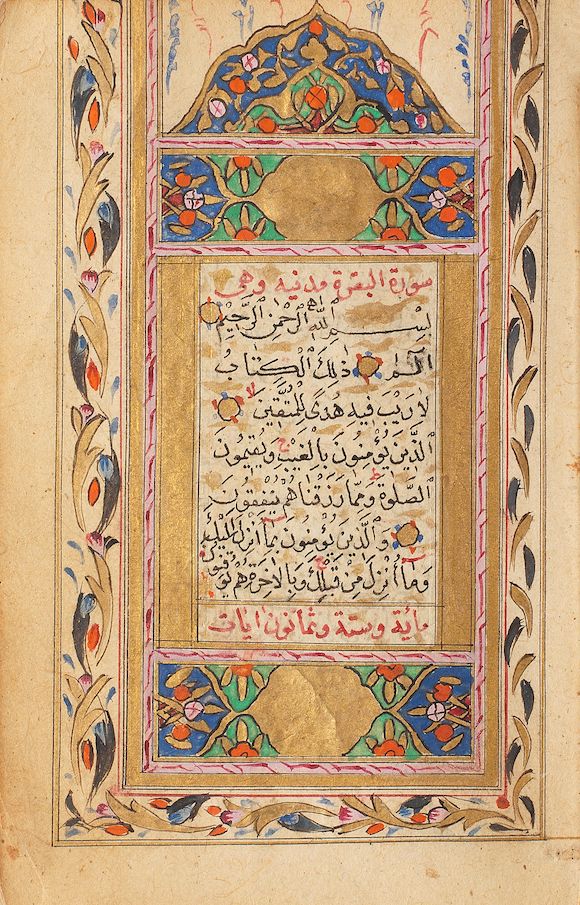 سورة البقرة مدنيه وهي
بِسْمِ ٱللَّهِ ٱلرَّحْمٰنِ ٱلرَّحِيْمِ
الٓمٓ ذٰلِكَ الْكِتَابُ
لَا رَيْبَ فِيهِ هُدًى لِلْمُتَّقِيْنَ
الَّذِيْنَ يُؤْمِنُونَ بِالْغَيْبِ وَيُقِيمُونَ
الصَّلٰوةَ وَمِمَّا رَزَقْنَاهُمْ يُنْفِقُونَ
وَالَّذِيْنَ يُؤْمِنُونَ بِمَٓا اُنْزِلَ اِلَيْكَ
وَمَٓا أُنْزِلَ مِنْ قَبْلِكَ وَبِالْاٰخِرَةِ هُمْ يُوقِنُونَ
مأية وستة وثمانون ايات